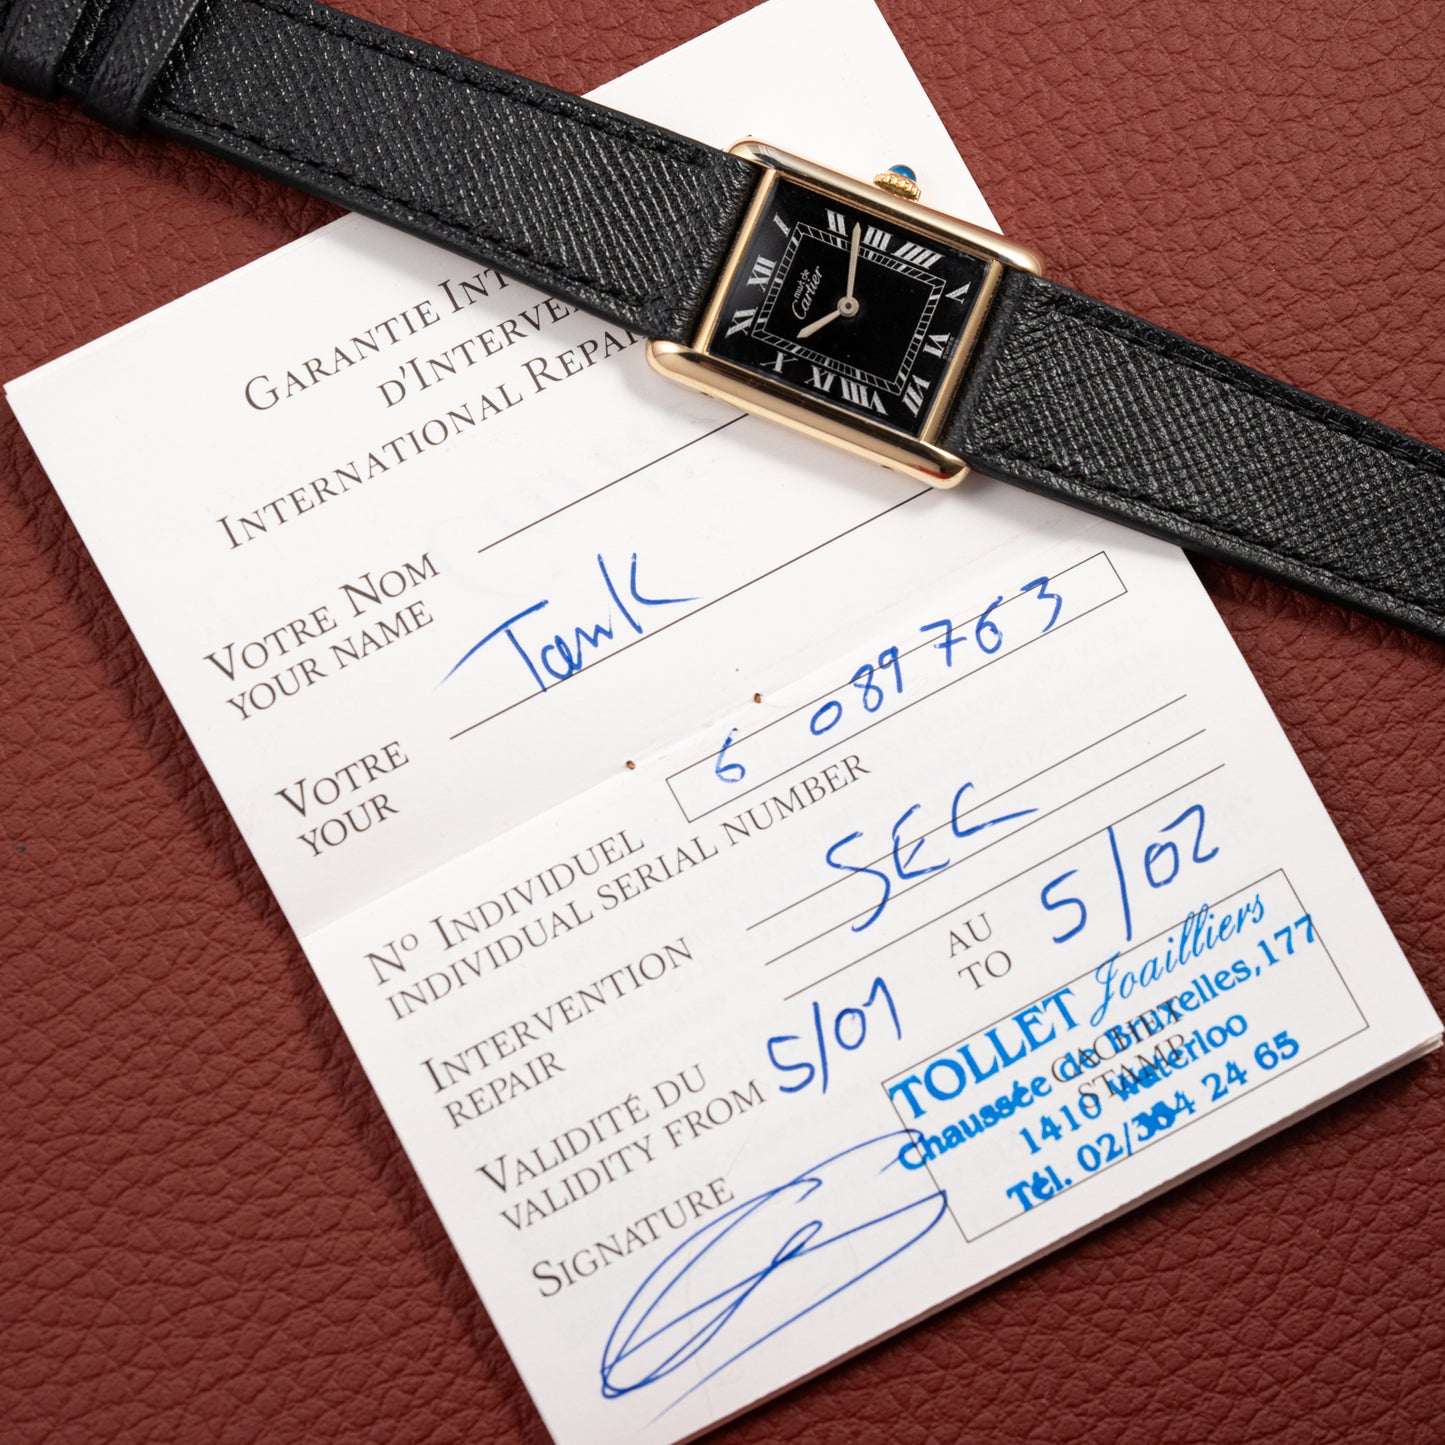 GARANTIE INT
D'INTERVE
INTERNATIONAL REPAI
VOTRE NOM
YOUR NAME
VOTRE Tank
YOUR
N° INDIVIDUEL 6 089 763
INDIVIDUAL SERIAL NUMBER
INTERVENTION SEC
REPAIR
VALIDITÉ DU 5/01 AU 5/02
VALIDITY FROM TO
SIGNATURE
CACHET
STAMP
TOLLET Joailliers
Chaussée de Bruxelles, 177
1410 Waterloo
Tél. 02/354 24 65
must de
Cartier
I II III IIII V VI VII VIII IX X XI XII